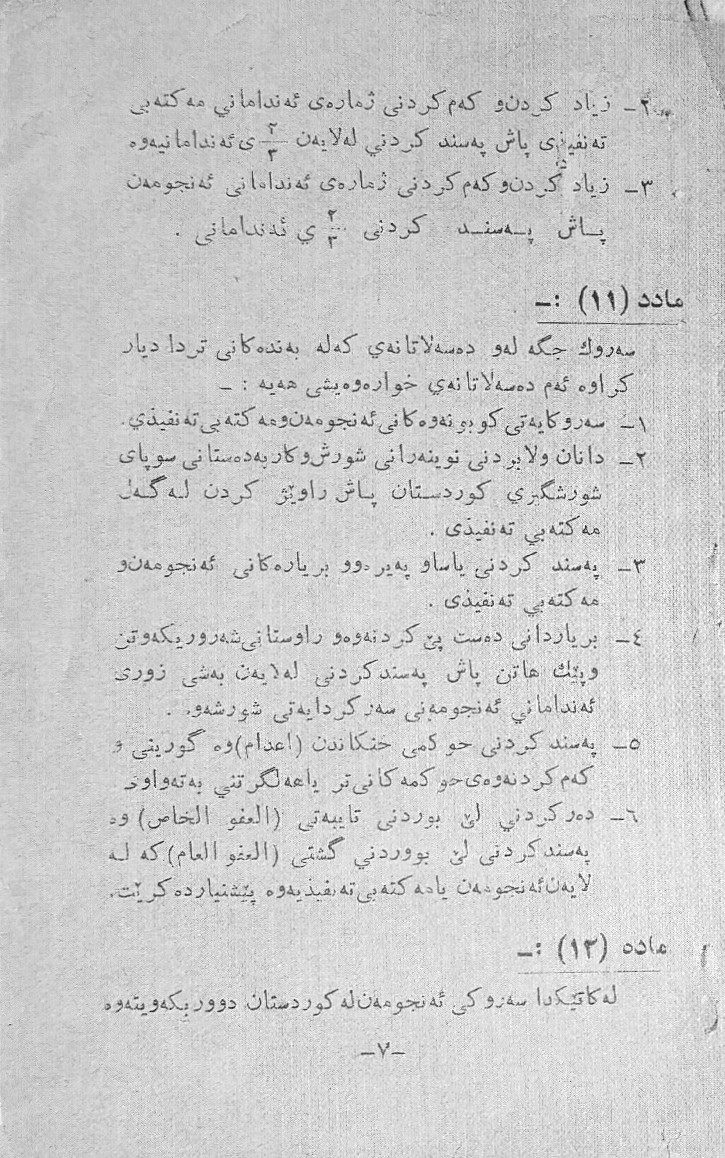 ٢ـ زیاد کردن‌و کەم‌کردنی ژمارەی ئەندامانی مەکتەبی
تەنفیذی پاش پەسند کردنی لەلایەن ٢/٣ ی ئەندامانیەوە
٣ـ زیاد کردن‌وکەم‌کردنی ژمارەی ئەندامانی ئەنجومەن
پاش پەسند کردنی ٢/٣ ي ئەندامانی .
مادد (١١) :ـ
سەروك جگە لەو دەسەلاتانەي کەلە بەندەکانی تردا دیار
کراوە ئەم دەسەلاتانەي خوارەوەیشی هەیە : ـ
١ـ سەروکایەتی کوبونەوەکانی ئەنجومەن‌ومەکتەبی تەنفیذي.
٢ـ دانان ولابردنی نوینەرانی شورش‌وکاربەدەستانی سوپای
شورشگیري کوردستان پاش راوێژ کردن لەگەل
مەکتەبي تەنفیذی .
٣ـ پەسند کردنی یاساو پەیرەوو بریارەکانی ئەنجومەن‌و
مەکتەبي تەنفیذی .
٤ـ بریاردانی دەست پێ‌کردنەوەو راوستانی شەروریکەوتن
وپێك هاتن پاش پەسندکردنی لەلایەن بەشی زوری
ئەندامانی ئەنجومەنی سەرکردایەتی شورشەوە .
٥ـ پەسند کردنی حوکمی خنکاندن (اعدام)وە گورینی و
کەم‌کردنەوەی‌حوکمەکانی‌تر یاهەلگرتني بەتەواوی .
٦ـ دەرکردني لێ بوردنی تایبەتی (العفو الخاص) وە
پەسندکردنی لێ بووردني گشتی (العفو العام) کە لە
لایەن‌ئەنجومەن یامەکتەبی‌تەنفیذیەوە پێشنیاردەکرێت.
مادە (١٢) :ـ
لەکاتێکدا سەروکی ئەنجومەن‌لەکوردستان دووربکەویتەوە
ـ٧ـ